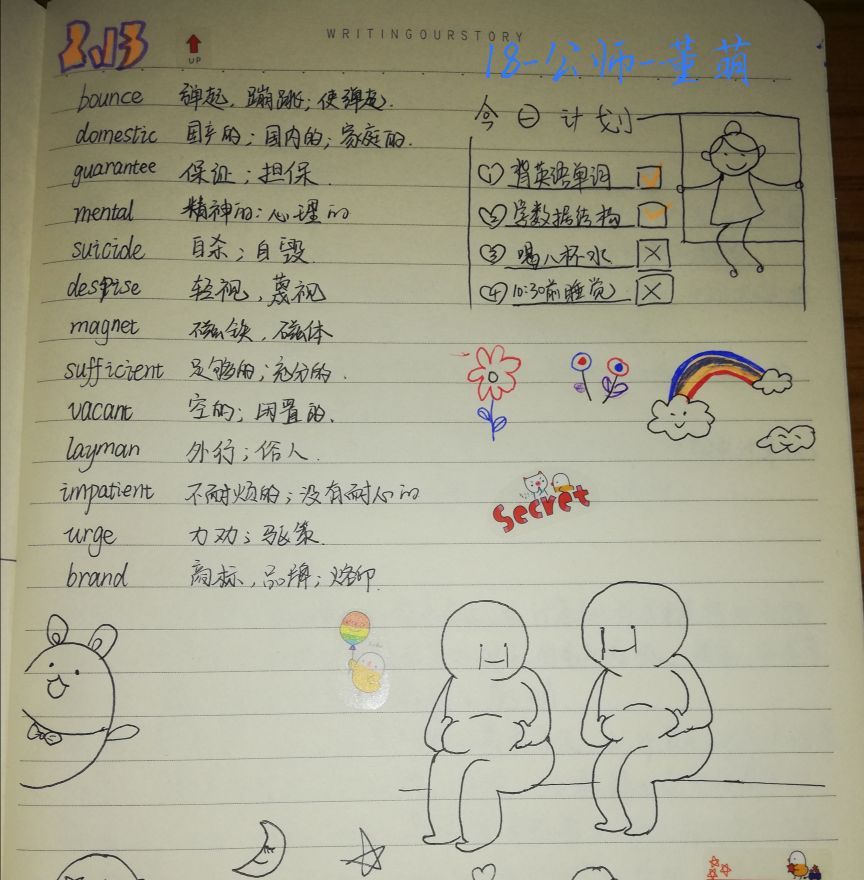 WRITINGOURSTORY
2.13
UP
18-公师-董萌
bounce 弹起，蹦跳；使弹起.
domestic 国产的；国内的；家庭的.
guarantee 保证；担保.
mental 精神的；心理的
suicide 自杀；自毁.
despise 轻视，蔑视
magnet 磁铁，磁体
sufficient 足够的；充分的.
vacant 空的；闲置的.
layman 外行；俗人.
impatient 不耐烦的；没有耐心的
urge 力劝；驱策.
brand 商标，品牌；烙印.
今日计划
① 背英语单词
② 学数据结构
③ 喝八杯水
④ 10:30前睡觉
Secret